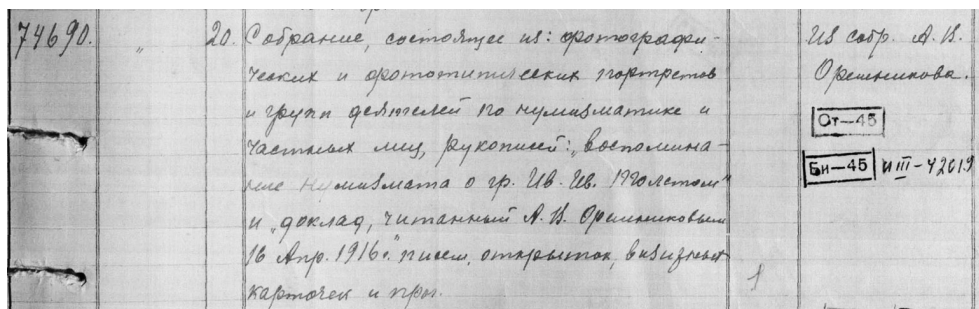 74690. „ 20. Собрание, состоящее из: фотографи-
ческих и фототипических портретов
и групп деятелей по нумизматике и
частных лиц, рукописей: „воспомина-
ние нумизмата о гр. Ив. Ив. Толстом"
и „доклад, читанный А. В. Орешниковым
16 Апр. 1916 г." писем, открыток, визитных
карточек и проч.
1
Из собр. А. В.
Орешникова.
От—45
Би—45 И III - 42019